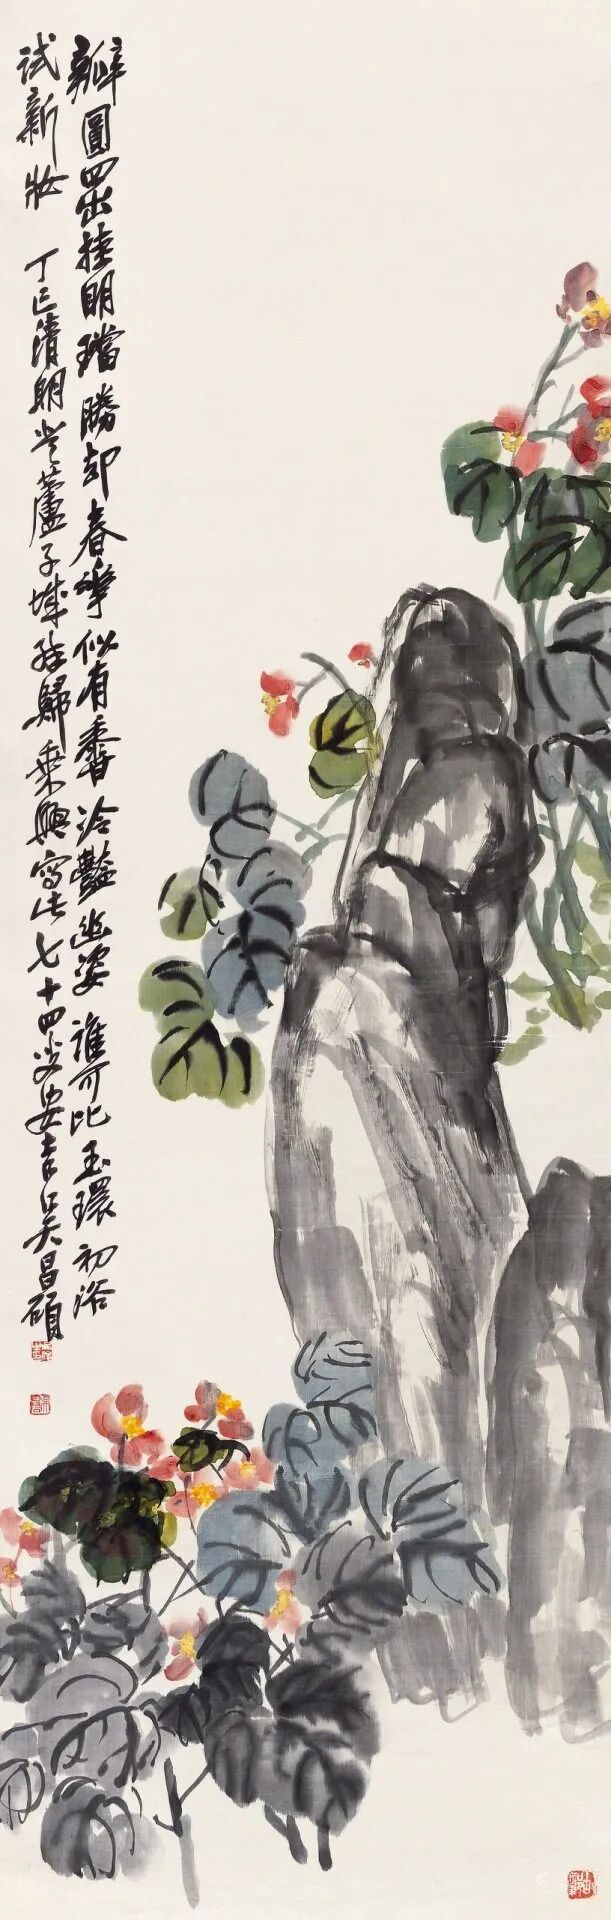 瓣圓四出挂明璫勝却春華似有香冷豔幽姿誰可比玉環初浴
試新妝 丁巳清明芝蘆子城醉歸乘興寫此七十四叟安吉吳昌碩